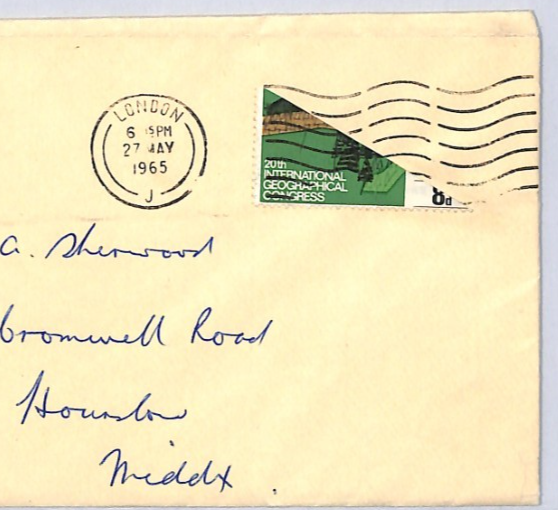 LONDON
6 15PM
27 MAY
1965
J
20th
INTERNATIONAL
GEOGRAPHICAL
CONGRESS
8d
A. Sherwood
Cromwell Road
Hounslow
Middx.